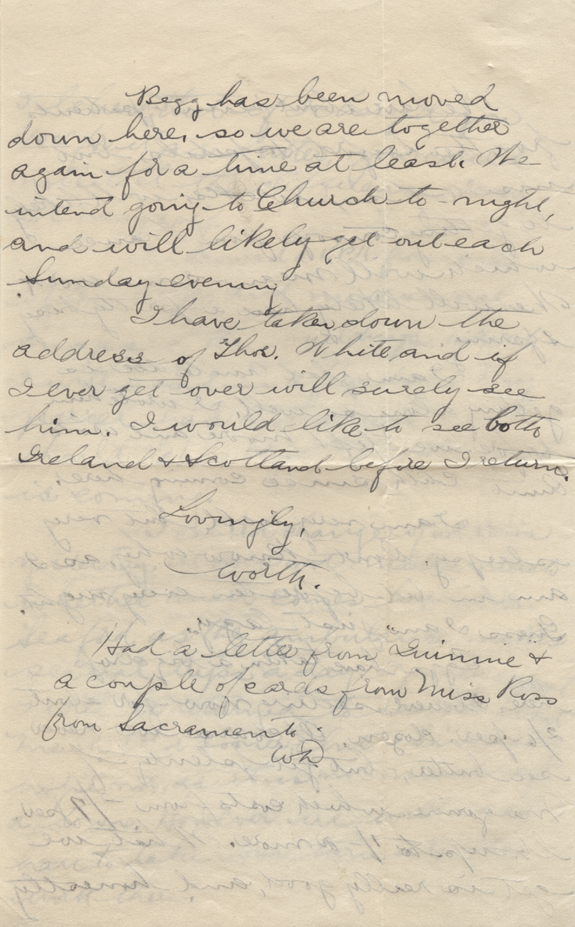 Begg has been moved
down here, so we are together
again for a time at least. We
intend going to Church to-night,
and will likely get out each
Sunday evening
I have taken down the
address of Thos. White, and if
I ever get over will surely see
him. I would like to see both
Ireland & Scotland before I return.
Lovingly,
Worth.
Had a letter from "Guinnie &
a couple of cards from Miss Ross
from Sacramento.